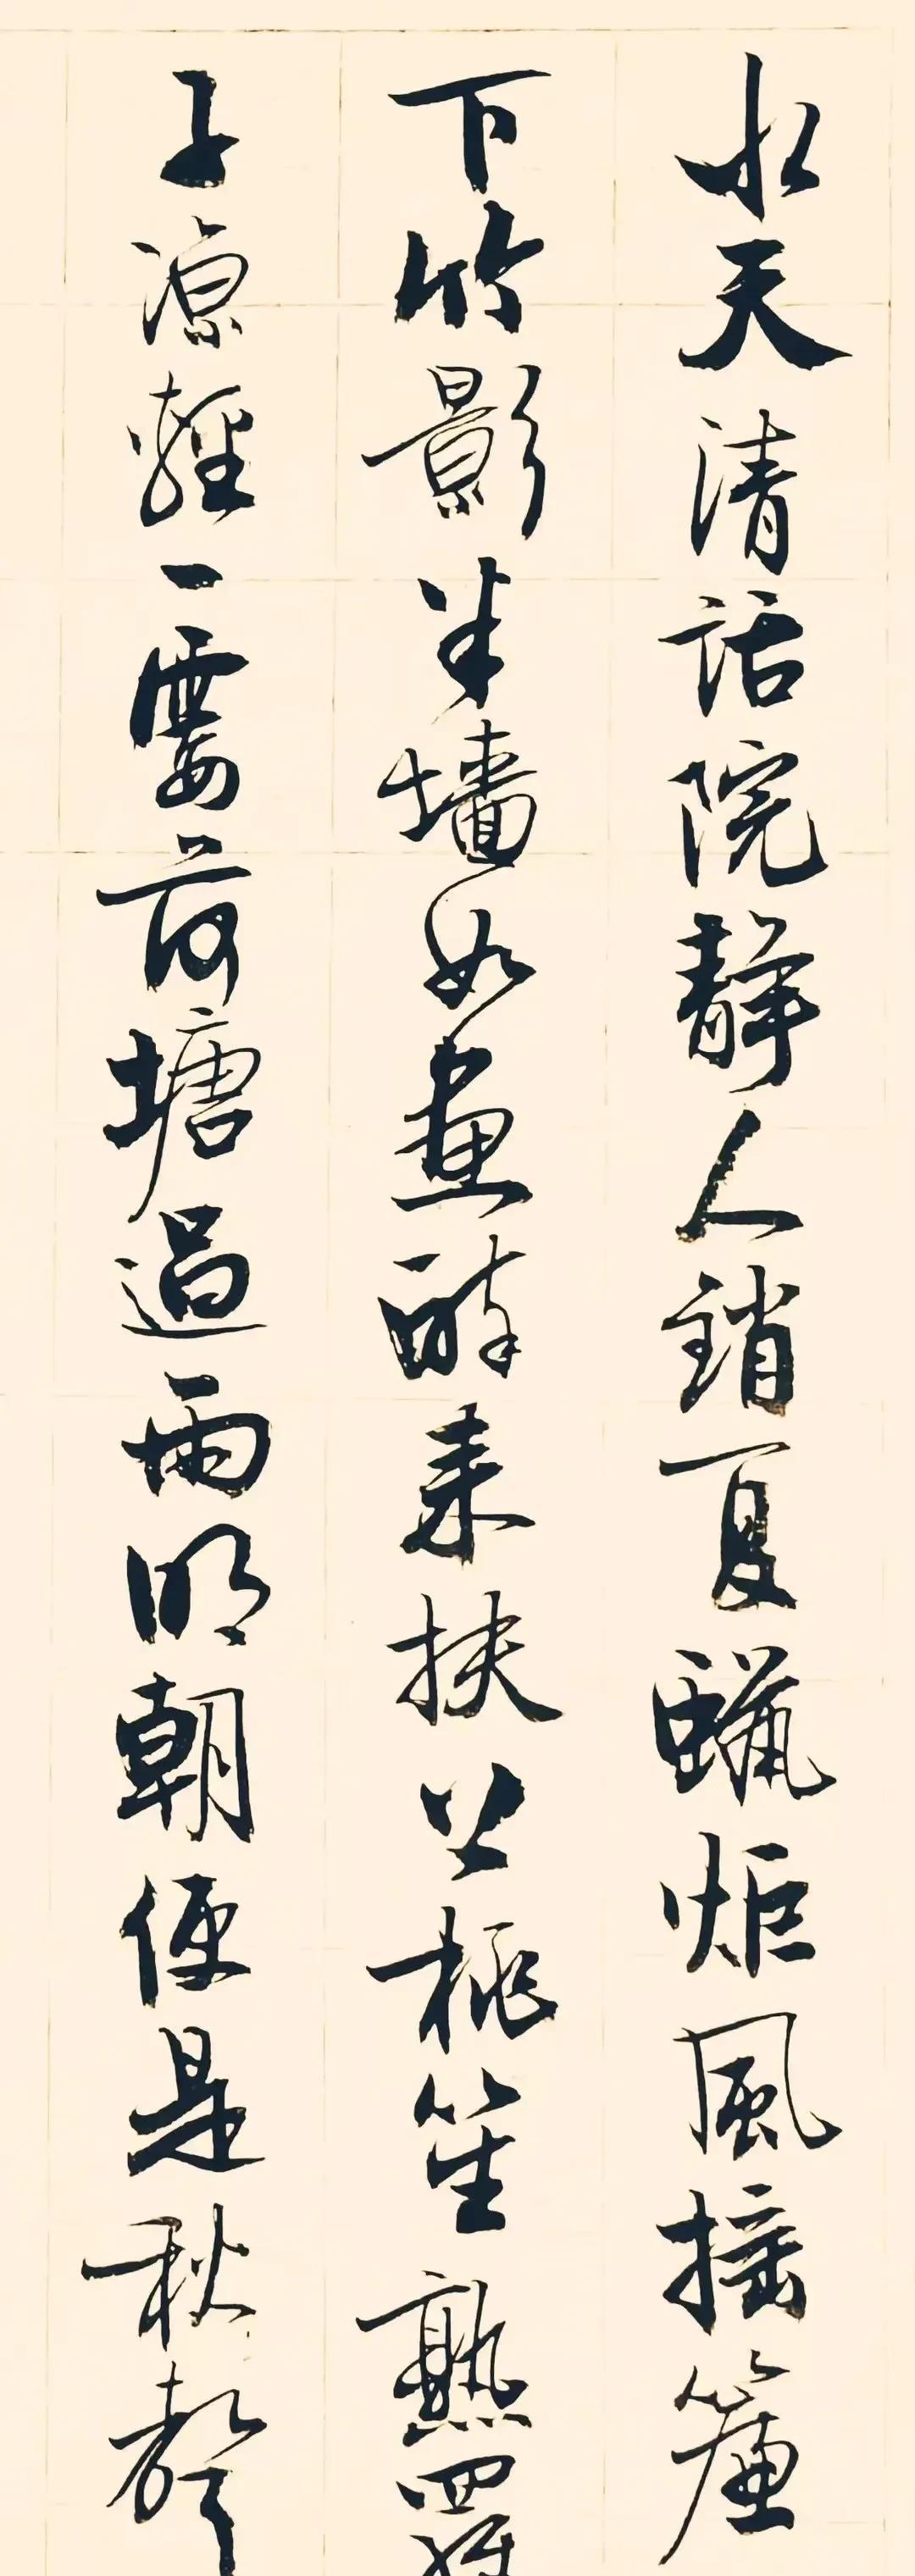 水天清話院靜人銷夏蠟炬風摇簾
下竹影半墙如畫醉来扶桃笙熟羅
子涼輕一霎荷塘過雨明朝便是秋聲